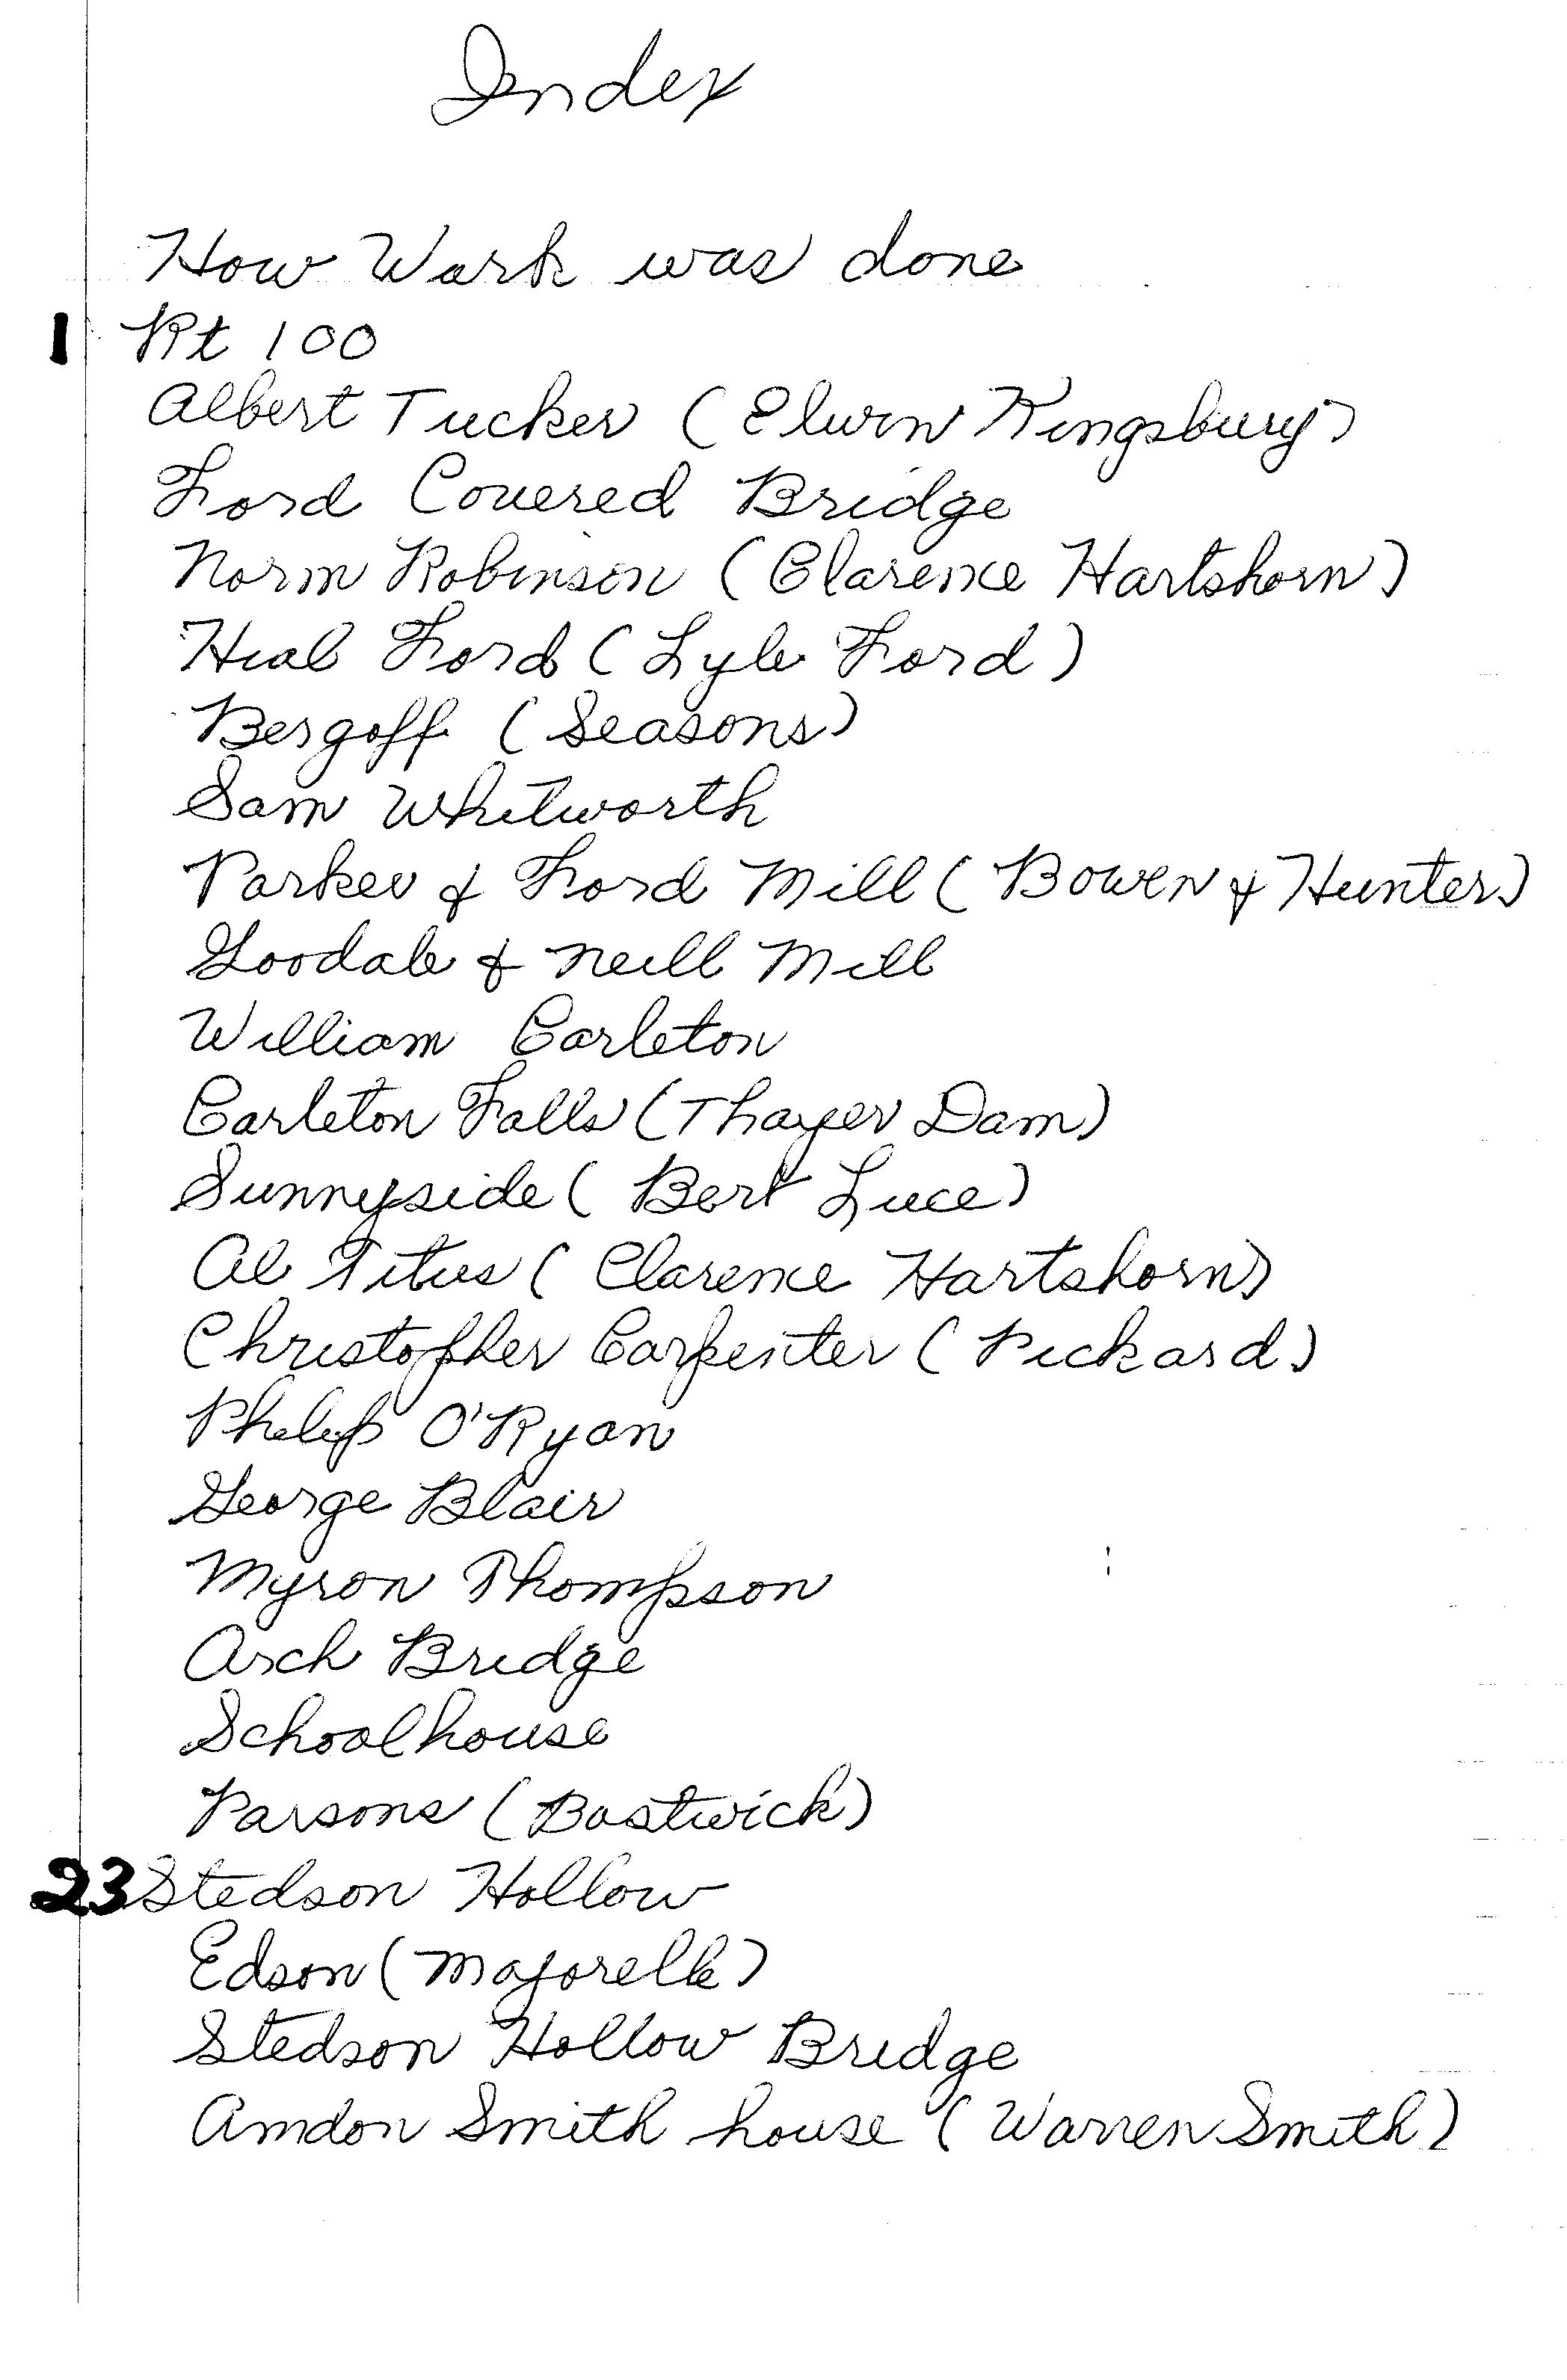 Index
How Work was done
1 Rt 100
Albert Tucker (Elwin Kingsbury)
Ford Covered Bridge
Norm Robinson (Clarence Hartshorn)
Heal Ford (Lyle Ford)
Bergoff (Seasons)
Sam Whitworth
Parker & Ford Mill (Bowen & Hunter)
Goodale & Neill Mill
William Carleton
Carleton Falls (Thayer Dam)
Sunnyside (Bert Luce)
Al Titus (Clarence Hartshorn)
Christopher Carpenter (Pickard)
Philip O'Ryan
George Blair
Myron Thompson
Arch Bridge
Schoolhouse
Parsons (Bostwick)
23 Stedson Hollow
Edson (Majorelle)
Stedson Hollow Bridge
Amdon Smith house (Warren Smith)